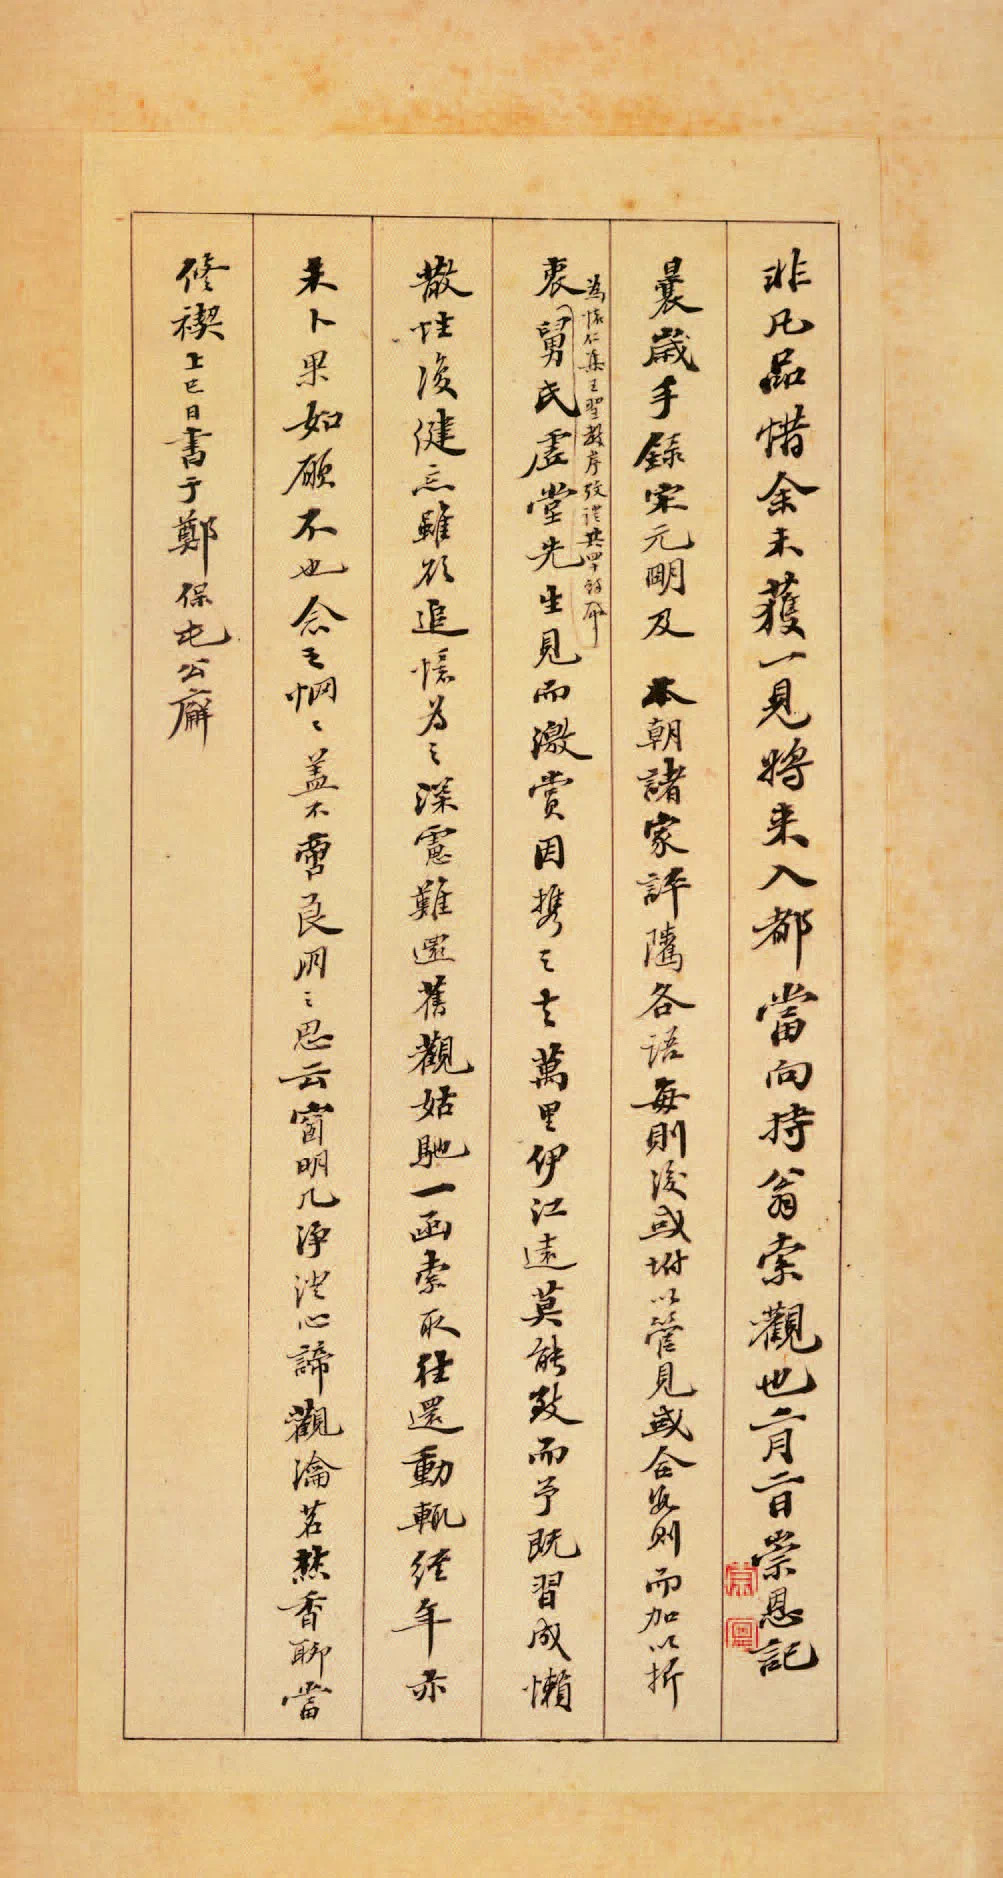 非凡品惜余未獲一見將来入都當向持翁索觀也二月二日崇恩記
曩歲手錄宋元明及 本朝諸家評隲各語每則後或坿以管見或合數則而加以折
衷舅氏虛堂先生見而激賞因攜之去萬里伊江遠莫能致而予既習成懶
為懷仁集王聖教序攷證共四十餘冊
散性復健忘雖欲追憶為之深慮難還舊觀姑馳一函索取往還動輒經年亦
未卜果如願不也念之惘〻蓋不啻良朋之思云窗明几淨澄心諦觀瀹茗爇香聊當
修禊上巳日書于鄭保屯公廨
崇恩